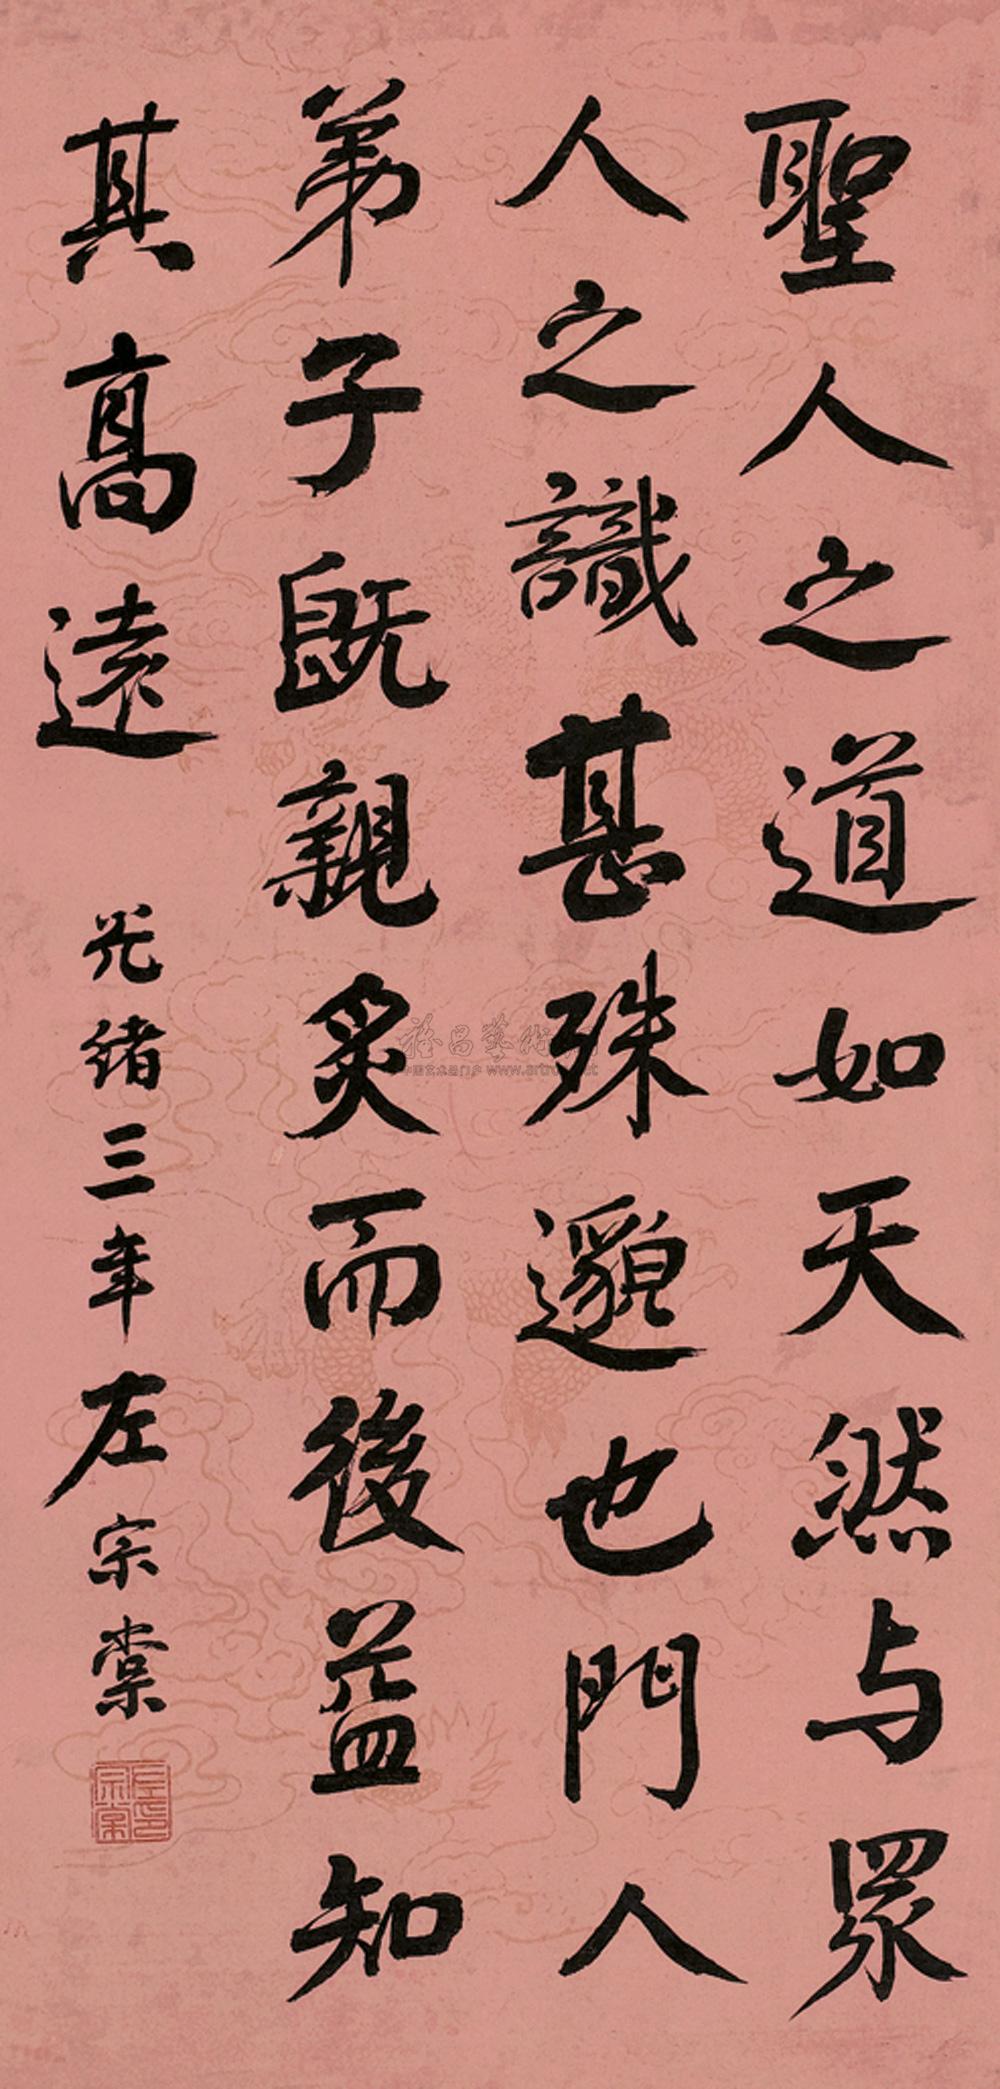 聖人之道如天然与眾
人之識甚殊邈也門人
弟子既親炙而後益知
其高遠
光緒三年左宗棠
左宗棠印
www.artron.net